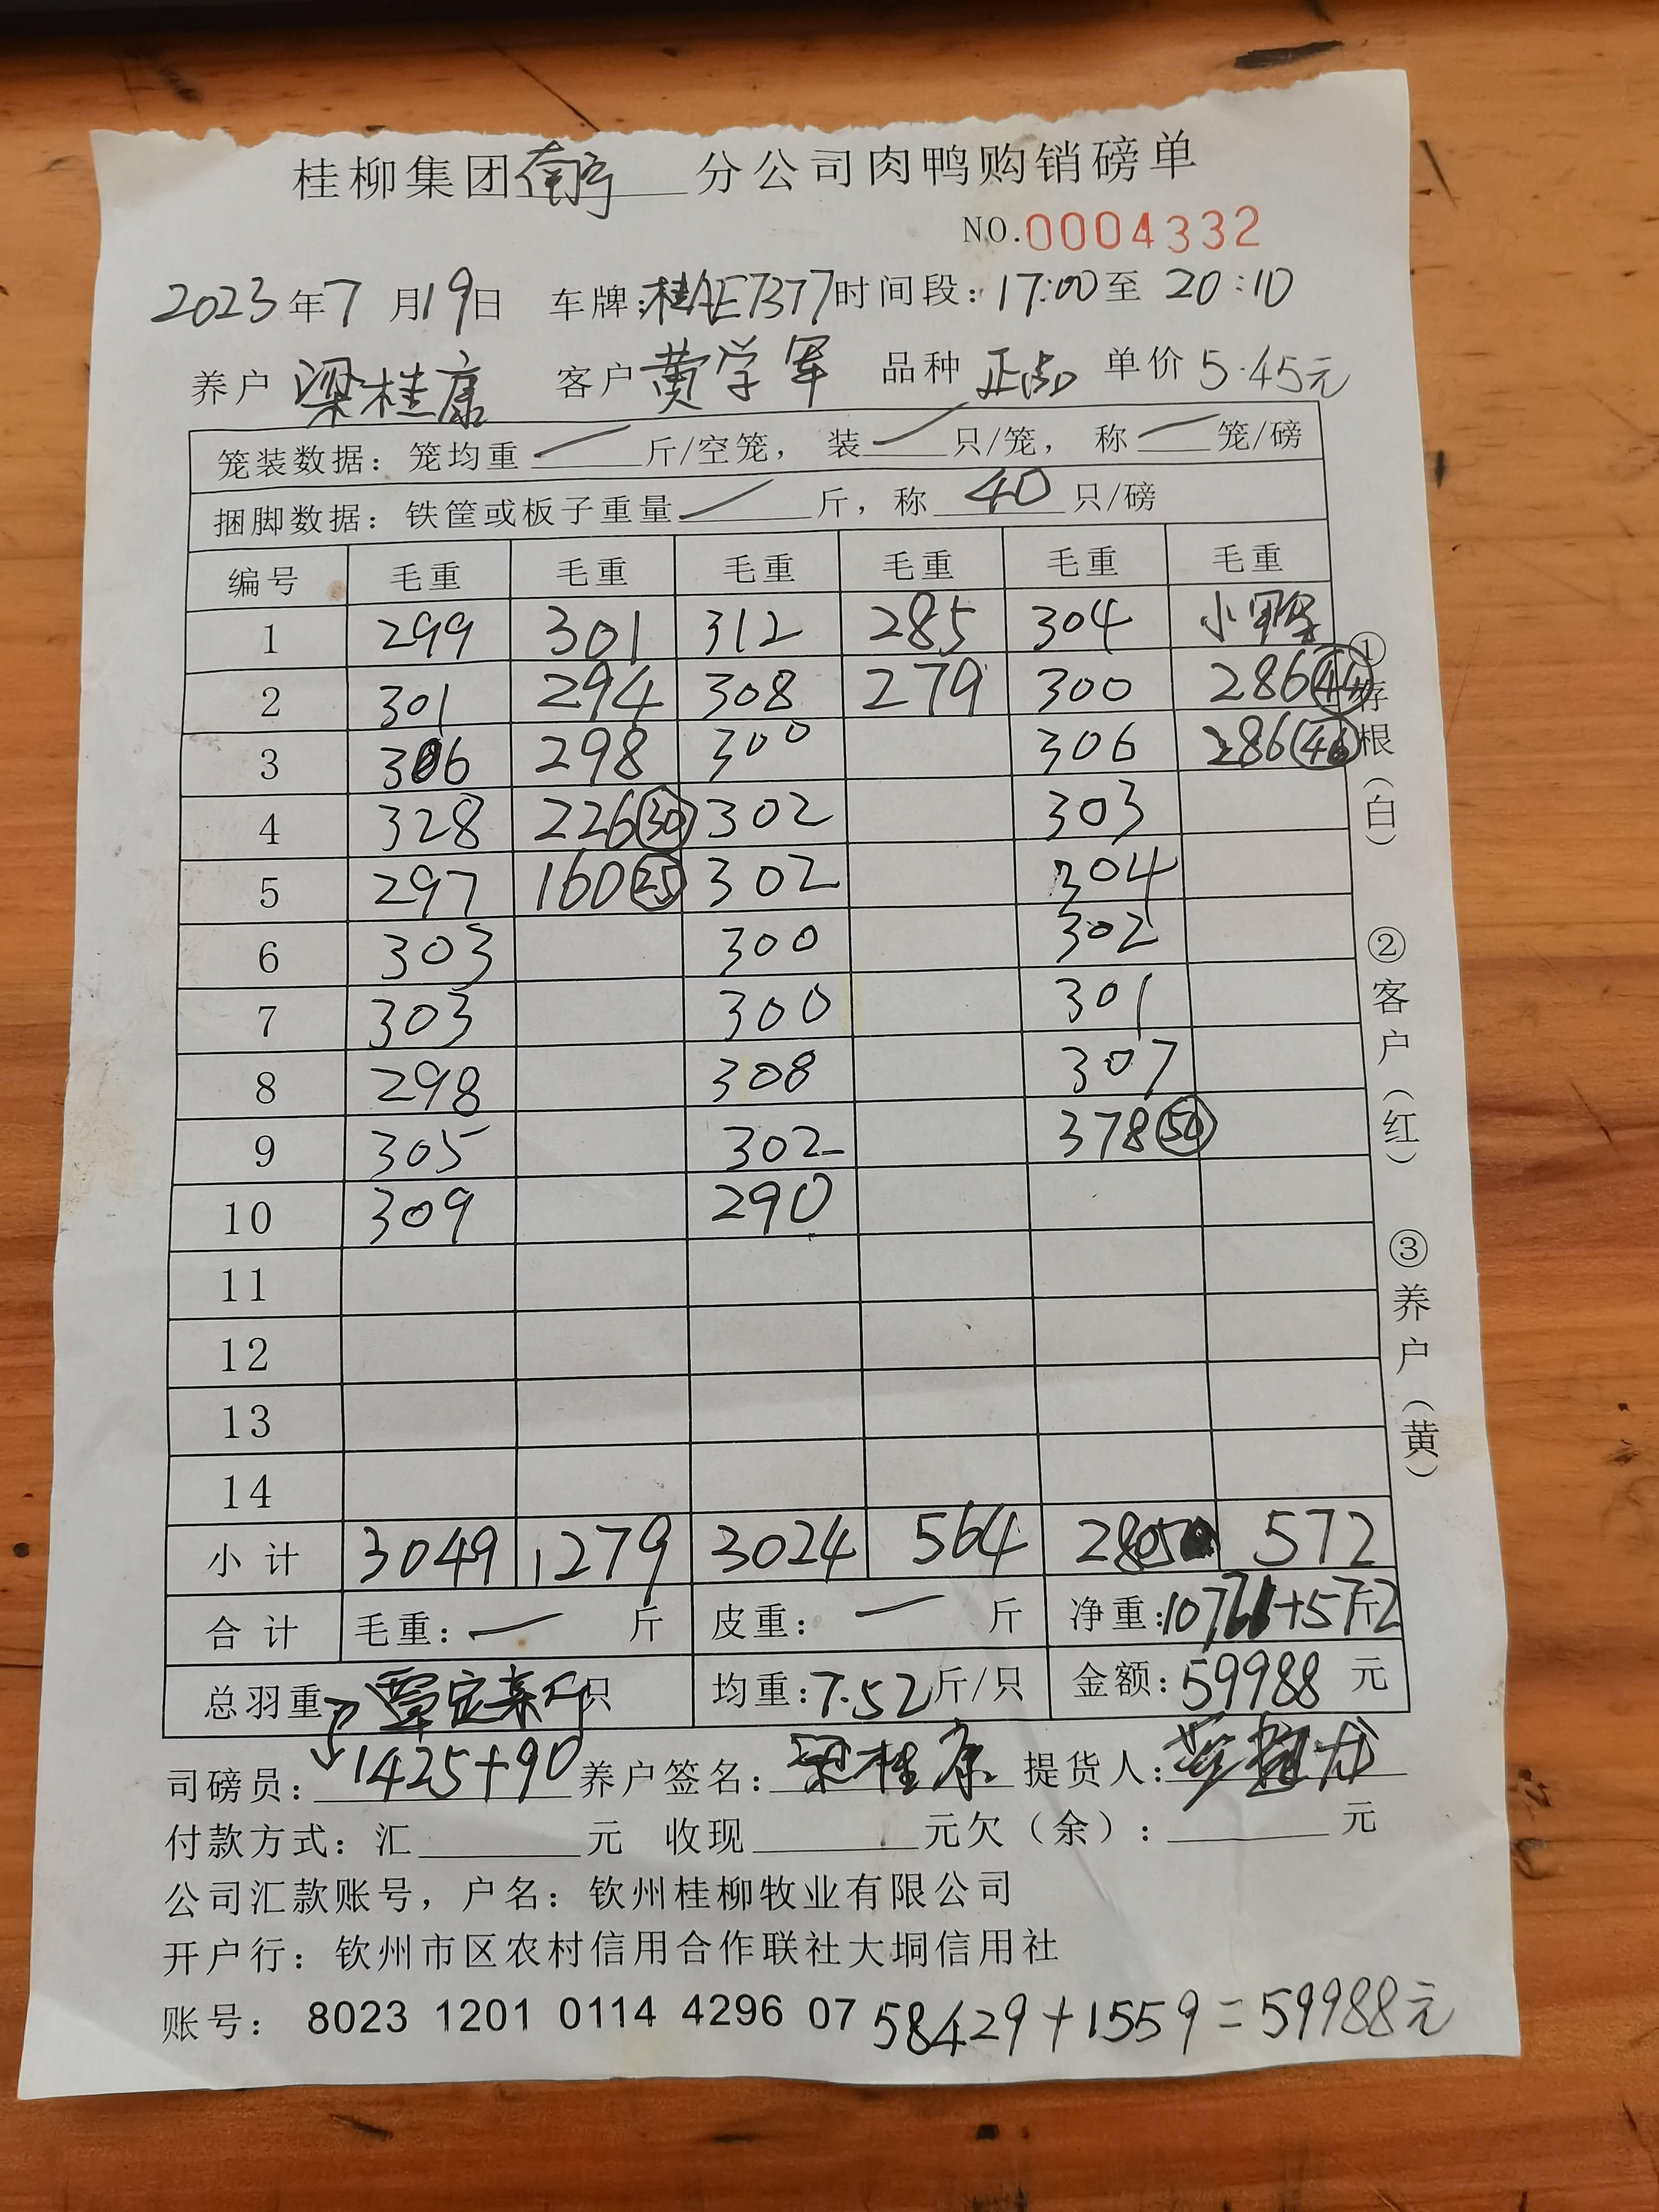 桂柳集团南宁分公司肉鸭购销磅单
NO.0004332
2023年7月19日 车牌:桂AE7377时间段:17:00至20:10
养户 梁桂康 客户黄学军 品种 正品 单价5.45元
笼装数据:笼均重 一 斤/空笼,装 一 只/笼,称 一 笼/磅
捆脚数据:铁筐或板子重量 一 斤,称 40 只/磅
编号 毛重 毛重 毛重 毛重 毛重 毛重
1 299 301 312 285 304 小鸭
2 301 294 308 279 300 286(44)
3 306 298 300 306 286(46)
4 328 226(30) 302 303
5 297 160(25) 302 304
6 303 300 302
7 303 300 301
8 298 308 307
9 305 302 378(50)
10 309 290
11
12
13
14
小计 3049 1279 3024 564 2805 572
合计 毛重:一 斤 皮重:一 斤 净重:10721+572斤
总羽重 只 均重:7.52斤/只 金额:59988 元
司磅员: 1425+90 养户签名:梁桂康 提货人:
付款方式:汇 元 收现 元欠(余): 元
公司汇款账号,户名:钦州桂柳牧业有限公司
开户行:钦州市区农村信用合作联社大垌信用社
账号: 8023 1201 0114 4296 07 58429+1559=59988元
①存根(白) ②客户(红) ③养户(黄)